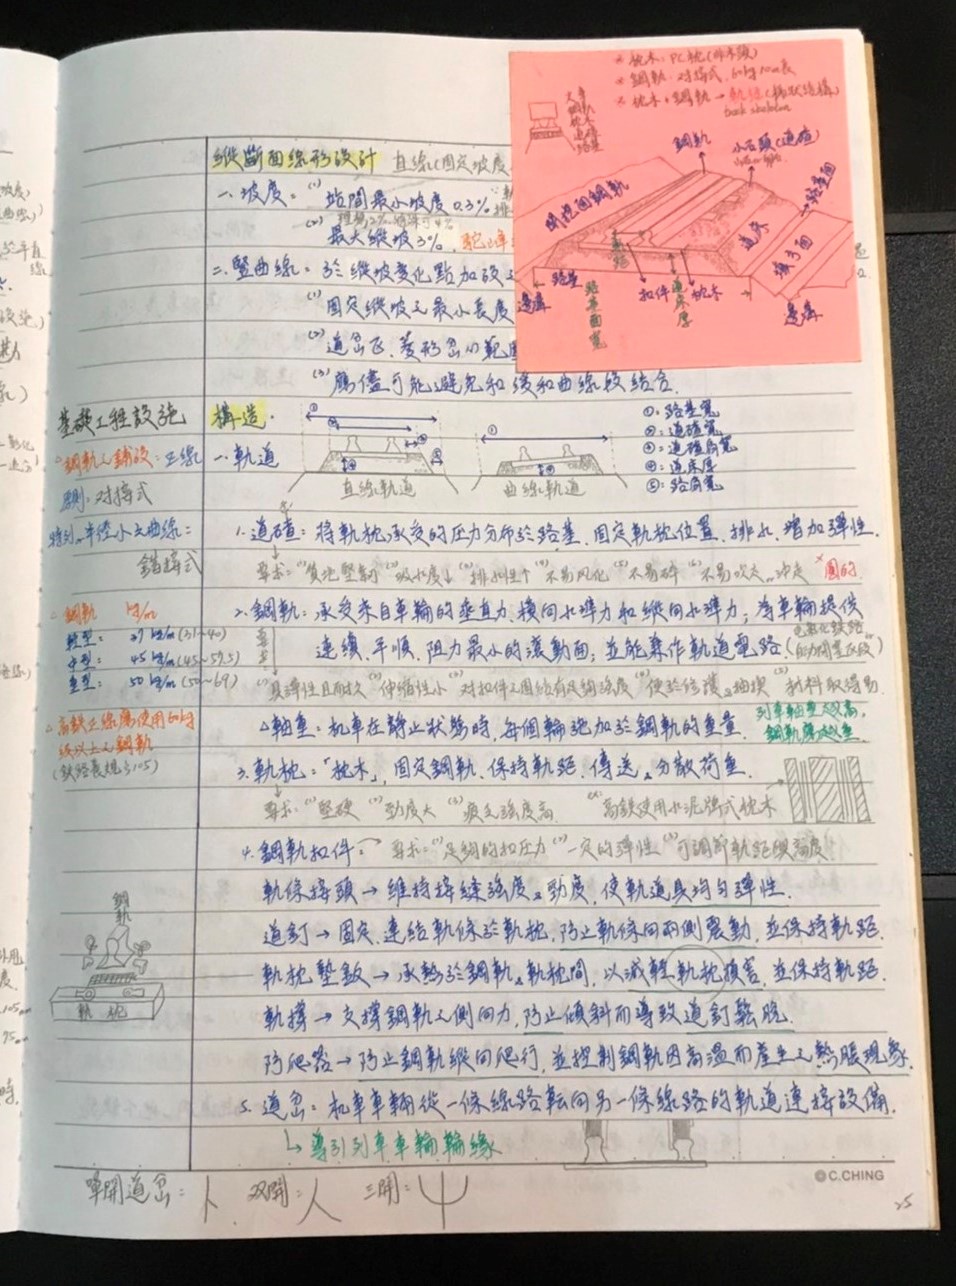 縱斷面線形設計 直線(固定坡度
一、坡度：(1) 站間最小坡度0.3%
(2) 最大縱坡3%
二、豎曲線：於縱坡變化點加設
(1) 固定縱坡之最小長度
(2) 道岔區、菱形岔心範圍
(3) 應儘可能避免和緩和曲線段結合.
* 枕木：PC枕
* 鋼軌：對接式、60kg
* 枕木+鋼軌→軌框
火車
鋼軌
枕木
道碴
路基
鋼軌
小石頭(道碴)
道床
路基
扣件
枕木
道床厚
路基面寬
邊溝
邊溝
基礎工程設施
構造：
一、軌道
直線軌道
曲線軌道
①：路基寬
②：道碴寬
③：道碴肩寬
④：道床厚
⑤：路肩寬
△鋼軌之鋪設：正線
原則：対接式
特別、半徑小之曲線：
錯接式
1.道碴：將軌枕承受的压力分布於路基、固定軌枕位置、排水、增加彈性.
要求：(1)質地堅韌 (2)吸水度↓ (3)排水性↑ (4)不易风化 (5)不易碎 (6)不易吹走、沖走 ×圓的
△鋼軌 kg/m
輕型： 37 kg/m (31~40)
中型： 45 kg/m (45~59.5)
重型： 50 kg/m (50~69)
2.鋼軌：承受來自車輪的垂直力、橫向水準力和縱向水準力；為車輪提供
連續、平順、阻力最小的滾動面；並能兼作軌道電路(電氣化鉄路
自动閉塞区段)
要求
(1)具彈性且耐久 (2)伸縮性小 (3)对扣件之固結有足夠強度 (4)便於修護、抽換 (5)材料取得易.
△高鉄正線應使用60kg
級以上之鋼軌
△軸重：机車在靜止狀態時、每個輪施加於鋼軌的重量.
列車軸重大或高,
鋼軌需越重.
3.軌枕：「枕木」,固定鋼軌、保持軌距、傳送&分散荷重.
要求：(1)堅硬 (2)勁度大 (3)疲乏強度高. ex:高鉄使用水泥塊式枕木
4.鋼軌扣件： 要求：(1)足夠的扣压力 (2)一定的彈性 (3)可調節軌距與高度
軌條接頭→維持接線強度&勁度,使軌道具均勻彈性.
道釘→固定、連結軌條於軌枕,防止軌條向兩側震動,並保持軌距.
軌枕墊鈑→承墊於鋼軌&軌枕間,以減輕軌枕損害,並保持軌距.
軌撐→支撐鋼軌之側向力,防止傾斜而導致道釘鬆脫.
防爬器→防止鋼軌縱向爬行,並控制鋼軌因高溫而產生之熱脹現象.
鋼軌
軌枕
5.道岔：机車車輛從一條線路転向另一條線路的軌道連接設備.
↳導引列車車輪輪緣
單開道岔：
双開：
三開：
©C.CHING
25